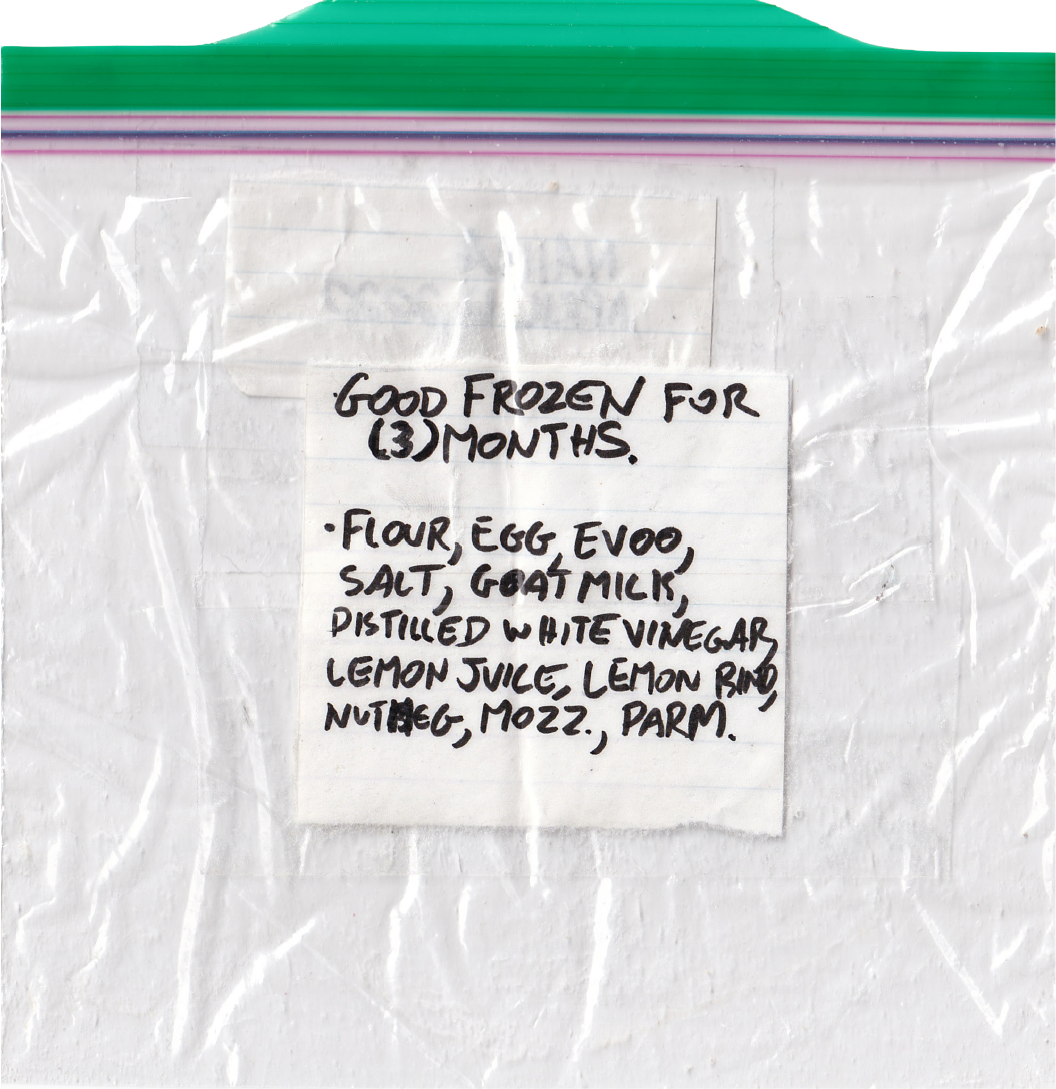 GOOD FROZEN FOR
(3) MONTHS.
• FLOUR, EGG, EVOO,
SALT, GOAT MILK,
DISTILLED WHITE VINEGAR,
LEMON JUICE, LEMON RIND,
NUTMEG, MOZZ., PARM.